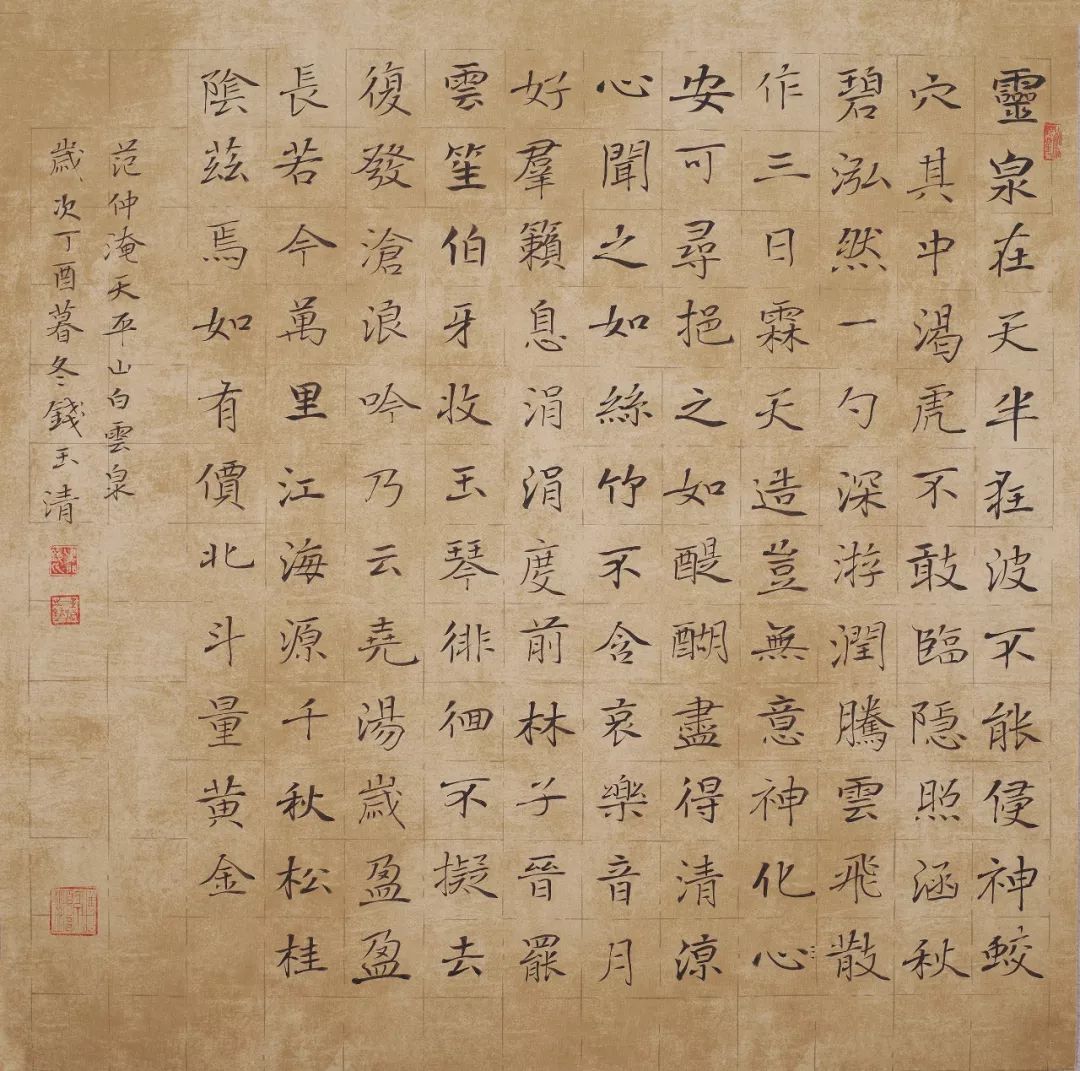 靈泉在天半狂波不能侵神蛟
穴其中渴虎不敢臨隱照涵秋
碧泓然一勺深游潤騰雲飛散
作三日霖天造豈無意神化心
安可尋挹之如醍醐盡得清涼
心聞之如絲竹不含哀樂音月
好羣籟息涓涓度前林子晉罷
雲笙伯牙收玉琴徘徊不擬去
復發滄浪吟乃云堯湯歲盈盈
長若今萬里江海源千秋松桂
陰茲焉如有價北斗量黃金
范仲淹天平山白雲泉
歲次丁酉暮冬錢玉清